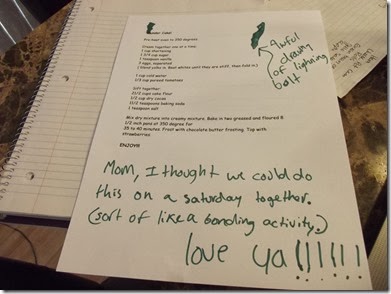 Cake!
Pre-heat oven to 350 degrees
Cream together one at a time:
1 cup shortening
1 3/4 cup sugar
1 teaspoon vanilla
3 eggs, separated
(blend yolks in. Beat whites until they are stiff, then fold in)
1 cup cold water
1/3 cup pureed tomatoes
Sift together:
2 1/2 cups cake flour
1/2 cup dry cocoa
1 1/2 teaspoons baking soda
1 teaspoon salt
Mix dry mixture into creamy mixture. Bake in two greased and floured 8
1/2 inch pans at 350 degree for
35 to 40 minutes. Frost with chocolate butter frosting. Top with
strawberries.
ENJOY!!!
Awful
drawing
of lightning
bolt
Mom, I thought we could do
this on a saturday together.
(sort of like a bonding activity.)
love ya!!!!!!!